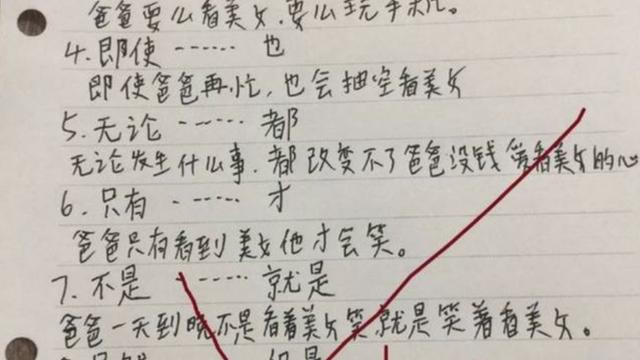 爸爸要么看美女.要么玩手机。
4.即使 …… 也
即使爸爸再忙,也会抽空看美女
5.无论 …… 都
无论发生什么事.都改变不了爸爸没钱爱看美女的心
6.只有 …… 才
爸爸只有看到美女他才会笑。
7.不是 …… 就是
爸爸一天到晚不是看着美女笑就是笑着看美女。